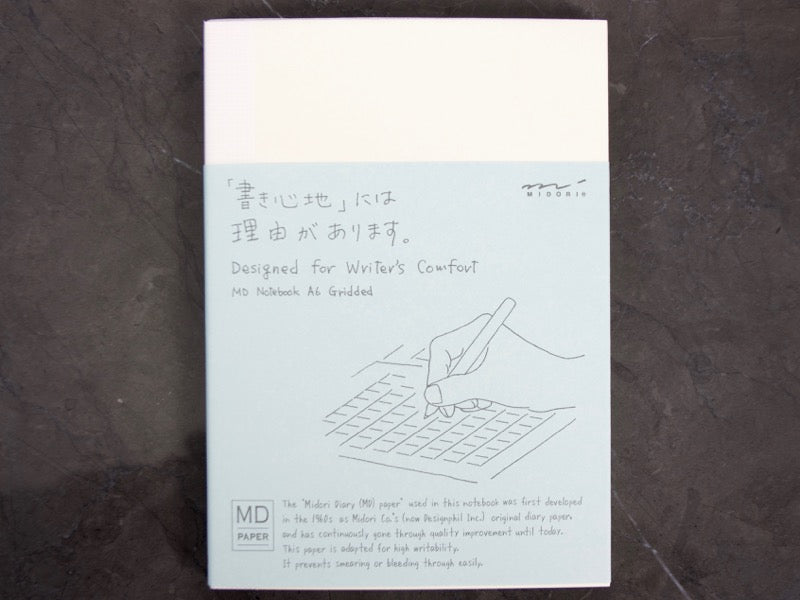 「書き心地」には
理由があります。
MIDORI®
Designed for Writer's Comfort
MD Notebook A6 Gridded
MD
PAPER
The "Midori Diary (MD) paper" used in this notebook was first developed
in the 1960s as Midori Co.'s (now Designphil Inc.) original diary paper,
and has continuously gone through quality improvement until today.
This paper is adapted for high writability.
It prevents smearing or bleeding through easily.